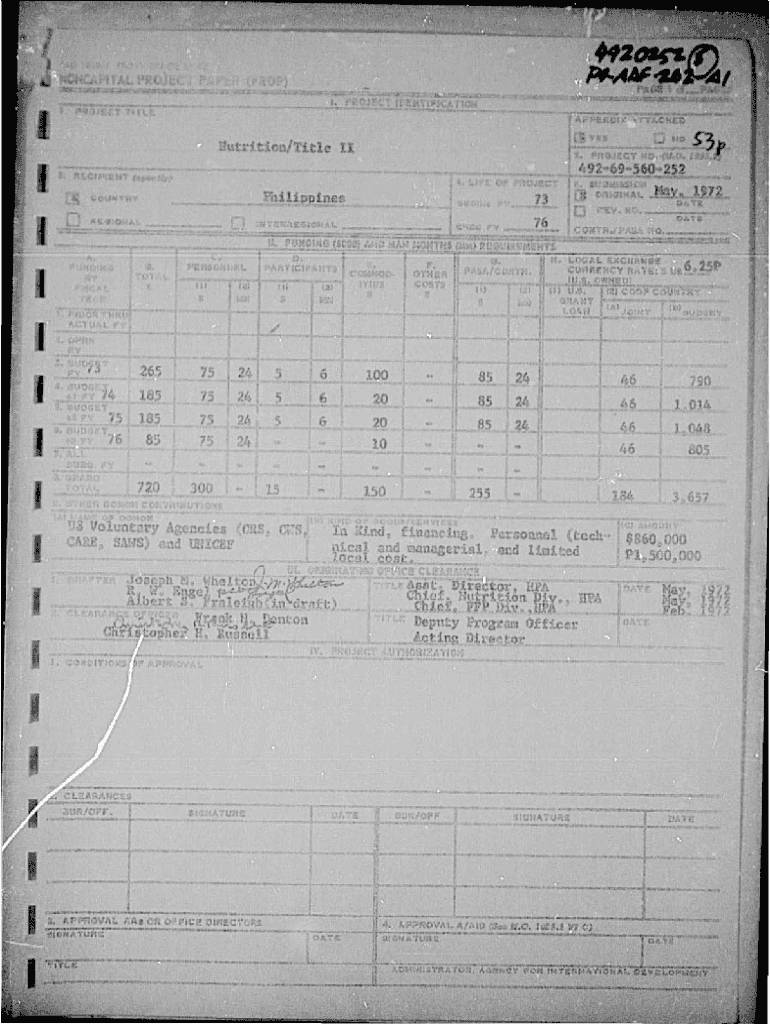 4920252 (8)
PD-AAF-242-A1
NONCAPITAL PROJECT PAPER (PROP)
PAGE 1
I. PROJECT IDENTIFICATION
1. PROJECT TITLE
Nutrition/Title II
APPENDIX ATTACHED
YES NO 53p
2. PROJECT NO. (M.O. 1095.2)
492-69-560-252
3. RECIPIENT (specify)
COUNTRY Philippines
REGIONAL INTERREGIONAL
4. LIFE OF PROJECT
BEGINS FY 73
ENDS FY 76
5. SUBMISSION
ORIGINAL May, 1972
DATE
REV. NO.
DATE
CONTR./PASA NO.
II. FUNDING ($000) AND MAN MONTHS (MM) REQUIREMENTS
A. FUNDING BY FISCAL YEAR
B. TOTAL $
C. PERSONNEL
(1) $ (2) MM
D. PARTICIPANTS
(1) $ (2) MM
E. COMMODITIES $
F. OTHER COSTS $
G. PASA/CONTR.
(1) $ (2) MM
H. LOCAL EXCHANGE CURRENCY RATE: $ US 6.25P (U.S. OWNED)
(1) U.S. GRANT LOAN
(2) COOP COUNTRY
(A) JOINT (B) BUDGET
1. PRIOR THRU ACTUAL FY
2. OPRN FY
3. BUDGET FY 73 265 75 24 5 6 100 - 85 24 46 790
4. BUDGET +1 FY 74 185 75 24 5 6 20 - 85 24 46 1,014
5. BUDGET +2 FY 75 185 75 24 5 6 20 - 85 24 46 1,048
6. BUDGET +3 FY 76 85 75 24 - - 10 - - - 46 805
7. ALL SUBQ. FY - - - - - - - - -
8. GRAND TOTAL 720 300 - 15 - 150 - 255 - 184 3,657
9. OTHER DONOR CONTRIBUTIONS
(A) NAME OF DONOR
US Voluntary Agencies (CRS, CWS,
CARE, SAWS) and UNICEF
(B) KIND OF GOODS/SERVICES
In Kind, financing. Personnel (tech-
nical and managerial, and limited
local cost.
(C) AMOUNT
$860,000
P1,500,000
III. ORIGINATING OFFICE CLEARANCE
1. DRAFTER Joseph M. Whelton
R. W. Engel
Albert S. Fraleigh (in draft)
TITLE Asst. Director, HPA
Chief, Nutrition Div., HPA
Chief, FFP Div., HPA
DATE May, 1972
May, 1972
Feb. 1972
2. CLEARANCE OFFICER
Frank H. Denton
Christopher H. Russell
TITLE Deputy Program Officer
Acting Director
DATE
IV. PROJECT AUTHORIZATION
1. CONDITIONS OF APPROVAL
2. CLEARANCES
BUR/OFF. SIGNATURE DATE BUR/OFF SIGNATURE DATE
3. APPROVAL AAs OR OFFICE DIRECTORS
SIGNATURE DATE
TITLE
4. APPROVAL A/AID (See M.O. 1025.1 VI C)
SIGNATURE DATE
ADMINISTRATOR, AGENCY FOR INTERNATIONAL DEVELOPMENT